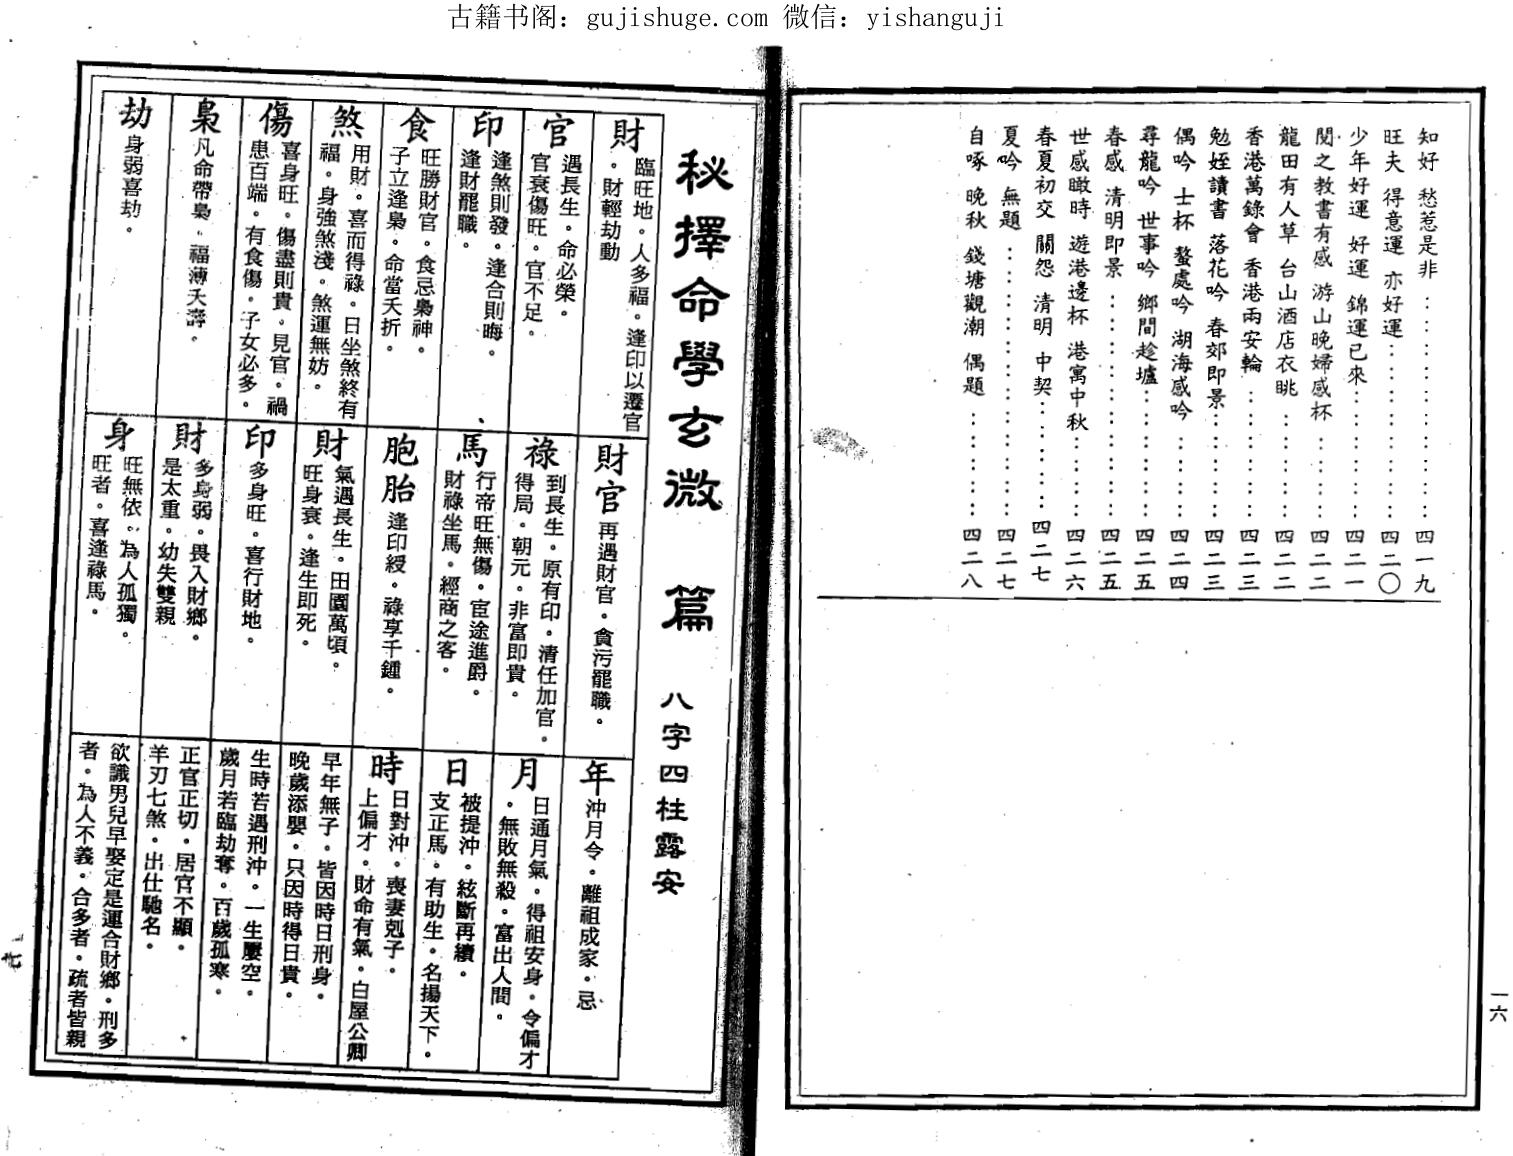 古籍书阁：gujishuge.com 微信：yishanguji
知好 愁惹是非………四一九
旺夫 得意運 亦好運………四二〇
少年好運 好運 錦運已來………四二一
閱之教書有感 游山晚婦感杯………四二二
龍田有人草 台山酒店衣眺………四二二
香港萬錄會 香港兩安輪………四二三
勉姪讀書 落花吟 春郊即景………四二三
偶吟 士杯 螯處吟 湖海感吟………四二四
尋龍吟 世事吟 鄉間趁墟………四二五
春感 清明即景………四二五
世感瞰時 遊港邊杯 港寓中秋………四二六
春夏初交 關怨 清明 中契………四二七
夏吟 無題………四二七
自啄 晚秋 錢塘觀潮 偶題………四二八
一六
秘擇命學玄微 篇 八字四柱露安
財 臨旺地。人多福。逢印以遷官
。財輕劫動
官 遇長生。命必榮。
官衰傷旺。官不足。
印 逢煞則發。逢合則晦。
逢財罷職。
食 旺勝財官。食忌梟神。
子立逢梟。命當夭折。
煞 用財。喜而得祿。日坐煞終有
福。身強煞淺。煞運無妨。
傷 喜身旺。傷盡則貴。見官。禍
患百端。有食傷。子女必多。
梟 凡命帶梟。福薄夭壽。
劫 身弱喜劫。
財官 再遇財官。貪污罷職。
祿 到長生。原有印。清任加官。
得局。朝元。非富即貴。
馬 行帝旺無傷。宦途進爵。
財祿坐馬。經商之客。
胞胎 逢印綬。祿享千鍾。
財 氣遇長生。田園萬頃。
旺身衰。逢生即死。
印 多身旺。喜行財地。
財 多身弱。畏入財鄉。
是太重。幼失雙親
身 旺無依。為人孤獨。
旺者。喜逢祿馬。
年 沖月令。離祖成家。忌
月 日通月氣。得祖安身。令偏才
。無敗無殺。富出人間。
日 被提沖。絃斷再續。
支正馬。有助生。名揚天下。
時 日對沖。喪妻剋子。
上偏才。財命有氣。白屋公卿
早年無子。皆因時日刑身。
晚歲添嬰。只因時得日貴。
生時若遇刑沖。一生屢空。
歲月若臨劫奪。百歲孤寒。
正官正切。居官不顯。
羊刃七煞。出仕馳名。
欲識男兒早娶定是運合財鄉。刑多
者。為人不義。合多者。疏者皆親